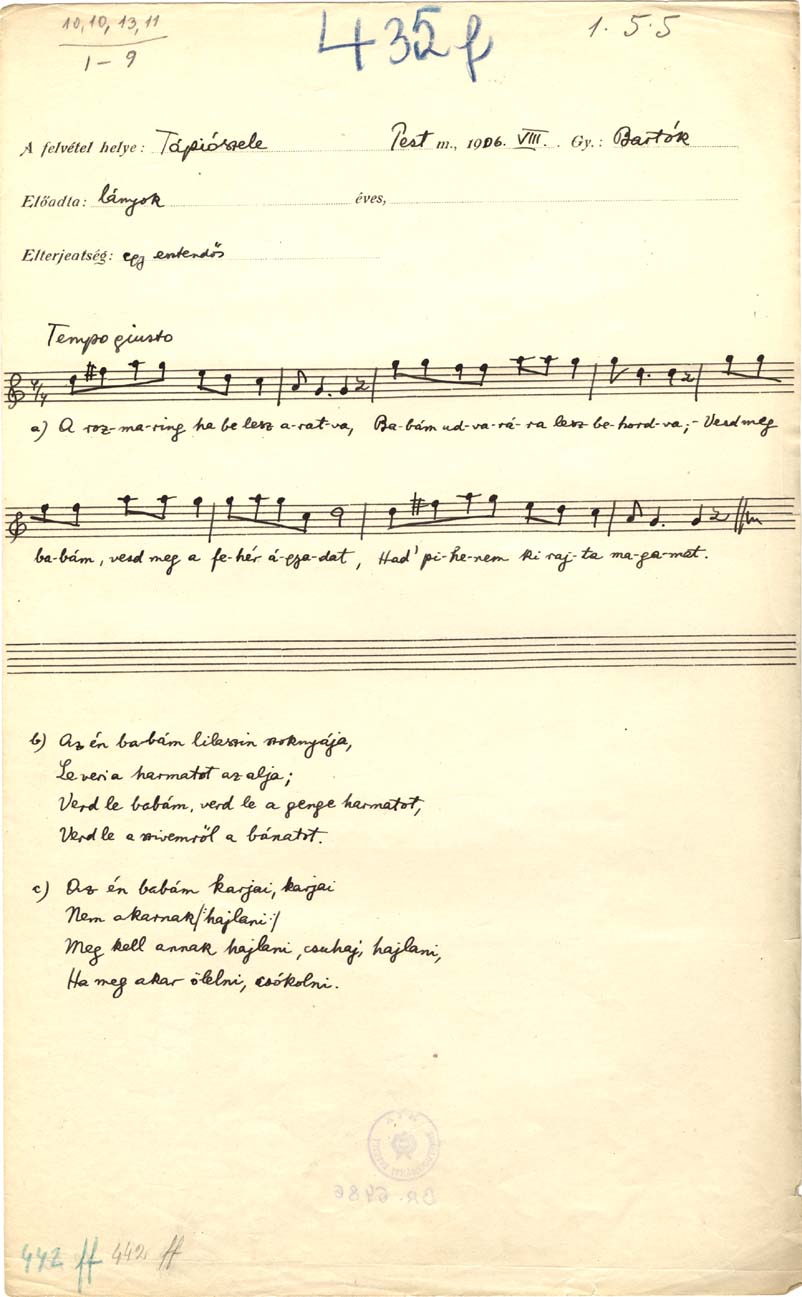 10, 10, 13, 11
1 - 9
435 f
1. 5. 5
A felvétel helye: Tápiószele Pest m., 1906. VIII. Gy.: Bartók
Előadta: lányok éves,
Elterjeatség: egy esztendős
Tempo giusto
4/4
a) A roz-ma-ring ha be lesz a-rat-va, Ba-bám ud-va-rá-ra lesz be-hord-va; - Vesd meg
ba-bám, vesd meg a fe-hér á-gya-dat, Had' pi-he-nem ki raj-ta ma-ga-mat.
b) Az én ba-bám lilaszin szoknyája,
Leveri a harmatot az alja;
Verd le babám, verd le a genge harmatot,
Verd le a szivemről a bánatot.
c) Az én babám karjai, karjai
Nem akarnak /: hajlani :/
Meg kell annak hajlani, csuhaj, hajlani,
Ha meg akar ölelni, csókolni.
BR. 6486
442 ff 442 ff